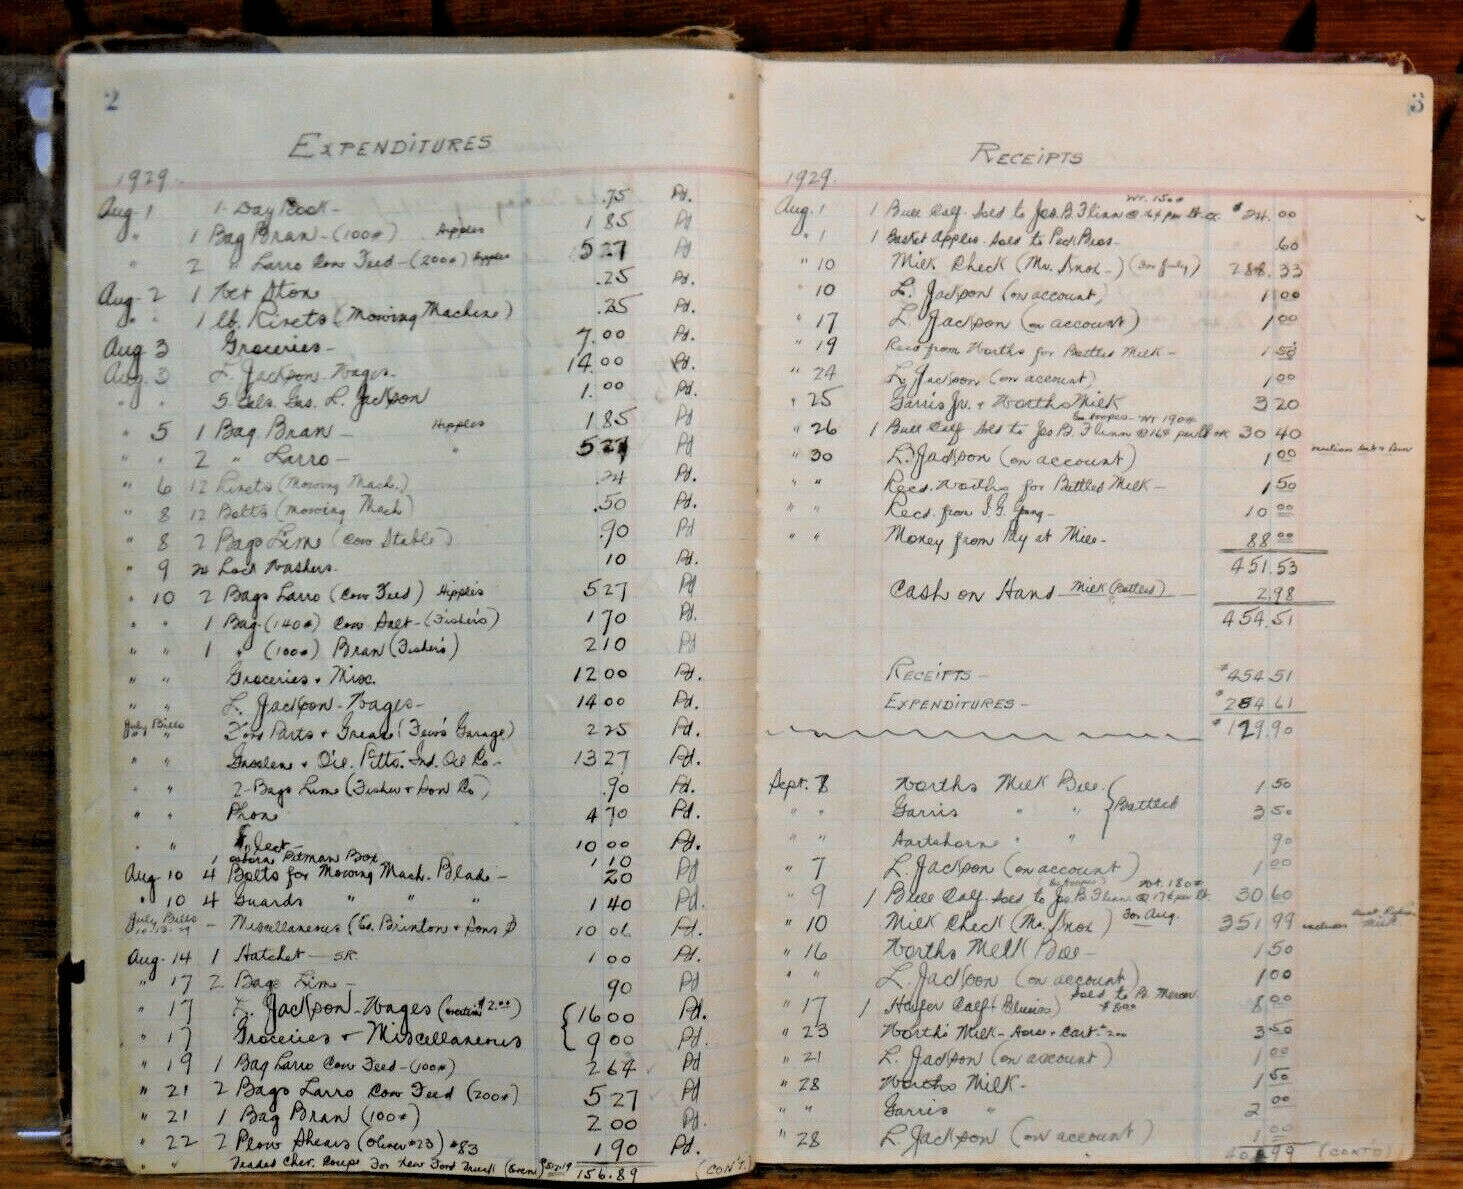 2
EXPENDITURES
1929.
Aug. 1 1- Day Book - .75 Pd.
" 1 Bag Bran - (100#) Hipples 1 85 Pd
" 2 " Larro Cow Feed - (200#) Hipples 5 27 Pd
1 Wet Stone .25 Pd.
Aug. 2 1 lb. Rivets (Mowing Machine) .25 Pd.
Aug 3 Groceries - 7.00 Pd.
Aug. 3 L. Jackson - Wages - 14.00 Pd.
" " 5 Gals. Gas. L. Jackson 1.00 Pd.
" 5 1 Bag Bran - Hipples 1 85 Pd
" " 2 " Larro - " 5 27 Pd
" 6 12 Rivets (Mowing Mach.) .24 Pd.
" 8 12 Bolts (Mowing Mach) .50 Pd.
" 8 2 Bags Lime (Cow Stable) .90 Pd
" 9 24 Lock Washers. 10 Pd.
" 10 2 Bags Larro (Cow Feed) Hipple's 5 27 Pd
" " 1 Bag (140#) Cow Salt - (Fisher's) 1 70 Pd
" " 1 " (100#) Bran (Fisher's) 2 10 Pd
" " Groceries + Misc. 12 00 Pd.
" " L. Jackson - Wages - 14 00 Pd.
July Bills
" " Ford Parts + Grease (Garage) 2 25 Pd.
" " Gasolene + Oil. Pitts. Ind. Oil Co - 13 27 Pd.
" " 2 - Bags Lime (Fisher + Son Co) .90 Pd.
" " Phone 4 70 Pd.
" " Elect - 10 00 Pd.
1 Osborne Pitman Box 1 10
Aug 10 4 Bolts for Mowing Mach. Blade - 20 Pd
" 10 4 Guards " " " 1 40 Pd.
July Bills - Miscellaneous (Ed. Brinton + Sons) 10 06 Pd.
Aug. 14 1 Hatchet - SR 1 00 Pd.
" 17 2 Bags Lime - 90 Pd
" 17 L. Jackson - Wages ($2.00) 16 00 Pd.
" 17 Groceries + Miscellaneous 9 00 Pd.
" 19 1 Bag Larro Cow Feed - (100#) 2 64 Pd
" 21 2 Bags Larro Cow Feed (200#) 5 27 Pd
" 21 1 Bag Bran (100#) 2 00 Pd.
" 22 2 Plow Shears (Oliver #23) #83 1 90 Pd.
" " Traded Chev. Coupe For New Ford Truck 156.89 (CON'T.)
3
RECEIPTS
1929.
Wt. 150#
Aug. 1 1 Bull Calf - Sold to Jos. B. Flinn @ 16¢ per lb. $24.00
" 1 1 Basket Apples - Sold to Bros - .60
" 10 Milk Check (Mr. Knox -) (For July) 288.33
" 10 L. Jackson (on account) 1 00
" 17 L. Jackson (on account) 1 00
" 19 Recd from Worths for Bottled Milk - 1 50
" 24 L. Jackson (on account) 1 00
" 25 Garris Jr. + Worths Milk 3 20
Wt 190#
" 26 1 Bull Calf - Sold to Jos B. Flinn @ 16¢ per lb 30 40
" 30 L. Jackson (on account) 1 00
" " Recd. Worths for Bottled Milk - 1 50
" " Recd. from 10 00
" " Money from Pay at Mill - 88 00
451.53
Cash on Hand - Milk (Bottled) - 2.98
454.51
RECEIPTS - $454.51
EXPENDITURES - $284 61
$129.90
Sept. 7 Worths Milk Bill. 1 50
" " Garris " " Bottled 3 50
" " Hartshorne " " 90
" 7 L. Jackson (on account) 1 00
Wt. 180#
" 9 1 Bull Calf - Sold to Jos B. Flinn @ 17¢ per lb. 30.60
" 10 Milk Check (Mr. Knox) For Aug. 351 99 includes
" 16 Worths Milk Bill - 1 50
" " L. Jackson (on account) 1 00
Sold to B. Mercer
" 17 1 Heifer Calf $8.00 8 00
" 23 Worth's Milk - 3 50
" 21 L. Jackson (on account) 1 00
" 28 Worths Milk - 1 50
" " Garris " 2 00
" 28 L. Jackson (on account) 1 00
(CONT'D)